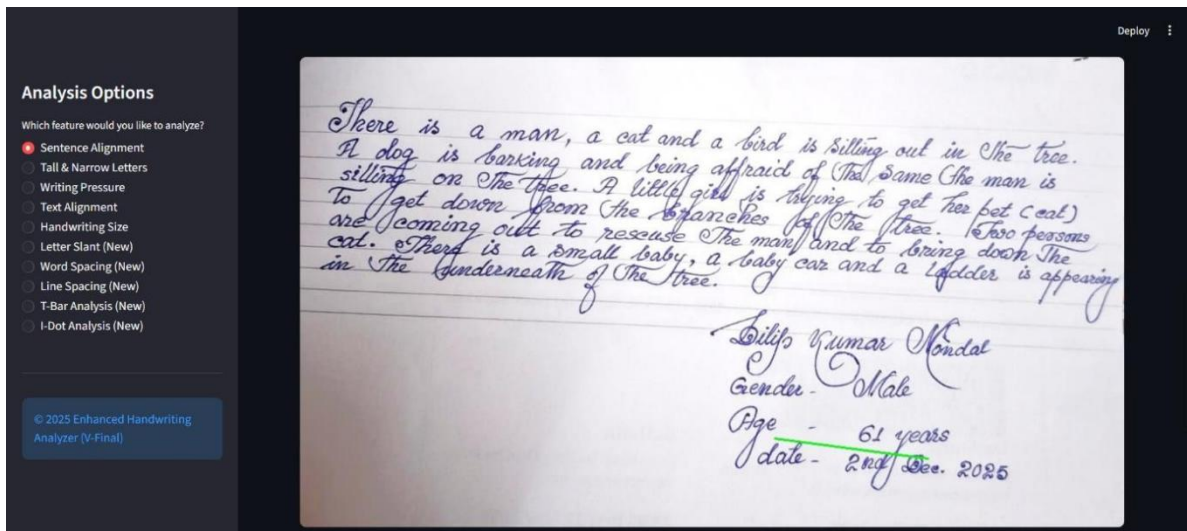 Deploy
Analysis Options
Which feature would you like to analyze?
Sentence Alignment
Tall & Narrow Letters
Writing Pressure
Text Alignment
Handwriting Size
Letter Slant (New)
Word Spacing (New)
Line Spacing (New)
T-Bar Analysis (New)
I-Dot Analysis (New)
© 2025 Enhanced Handwriting
Analyzer (V-Final)
There is a man, a cat and a bird is sitting out in the tree.
A dog is barking and being affraid of the same the man is
sitting on the tree. A little girl is trying to get her pet (cat)
To get down from the branches of the tree. Two persons
are coming out to rescuse the man and to bring down the
cat. There is a small baby, a baby car and a ladder is appearing
in the underneath of the tree.
Dilip Kumar Mondal
Gender - Male
Age - 61 years
date - 2nd Dec. 2025